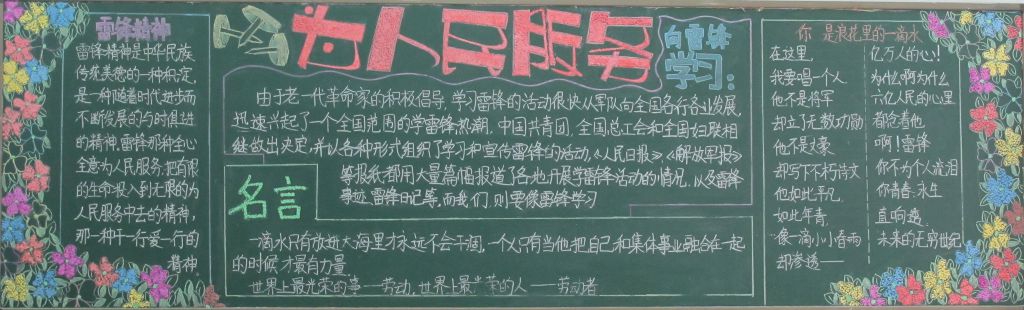 雷锋精神
雷锋精神是中华民族
传统美德的一种积定,
是一种随着时代进步而
不断发展的与时俱进
的精神,雷锋那种全心
全意为人民服务,把有限
的生命投入到无限的为
人民服务中去的精神,
那一种干一行爱一行的
精神
为人民服务
向雷锋
学习:
由于老一代革命家的积极倡导,学习雷锋的活动很快从军队向全国各行各业发展,
迅速兴起了一个全国范围的学雷锋热潮,中国共青团,全国总工会和全国妇联相
继做出决定,并以各种形式组织了学习和宣传雷锋的活动,《人民日报》《解放军报》
等报纸都用大量篇幅报道了各地开展学雷锋活动的情况,以及雷锋
事迹,雷锋日记等,而我们,则要像雷锋学习
名言
一滴水只有放进大海里才永远不会干涸,一个人只有当他把自己和集体事业融合在一起
的时候才最有力量
世界上最光荣的事——劳动,世界上最光荣的人——劳动者
你 是浪花里的一滴水
在这里,
我要唱一个人
他不是将军
却立了无数功勋
他不是文豪
却写下不朽诗文
他如此平凡
如此年青,
像一滴小小春雨
却渗透——
亿万人的心!
为什么啊为什么
六亿人民的心里
都念着他
啊!雷锋
你不为个人流泪
你青春永生
直响透
未来的无穷世纪